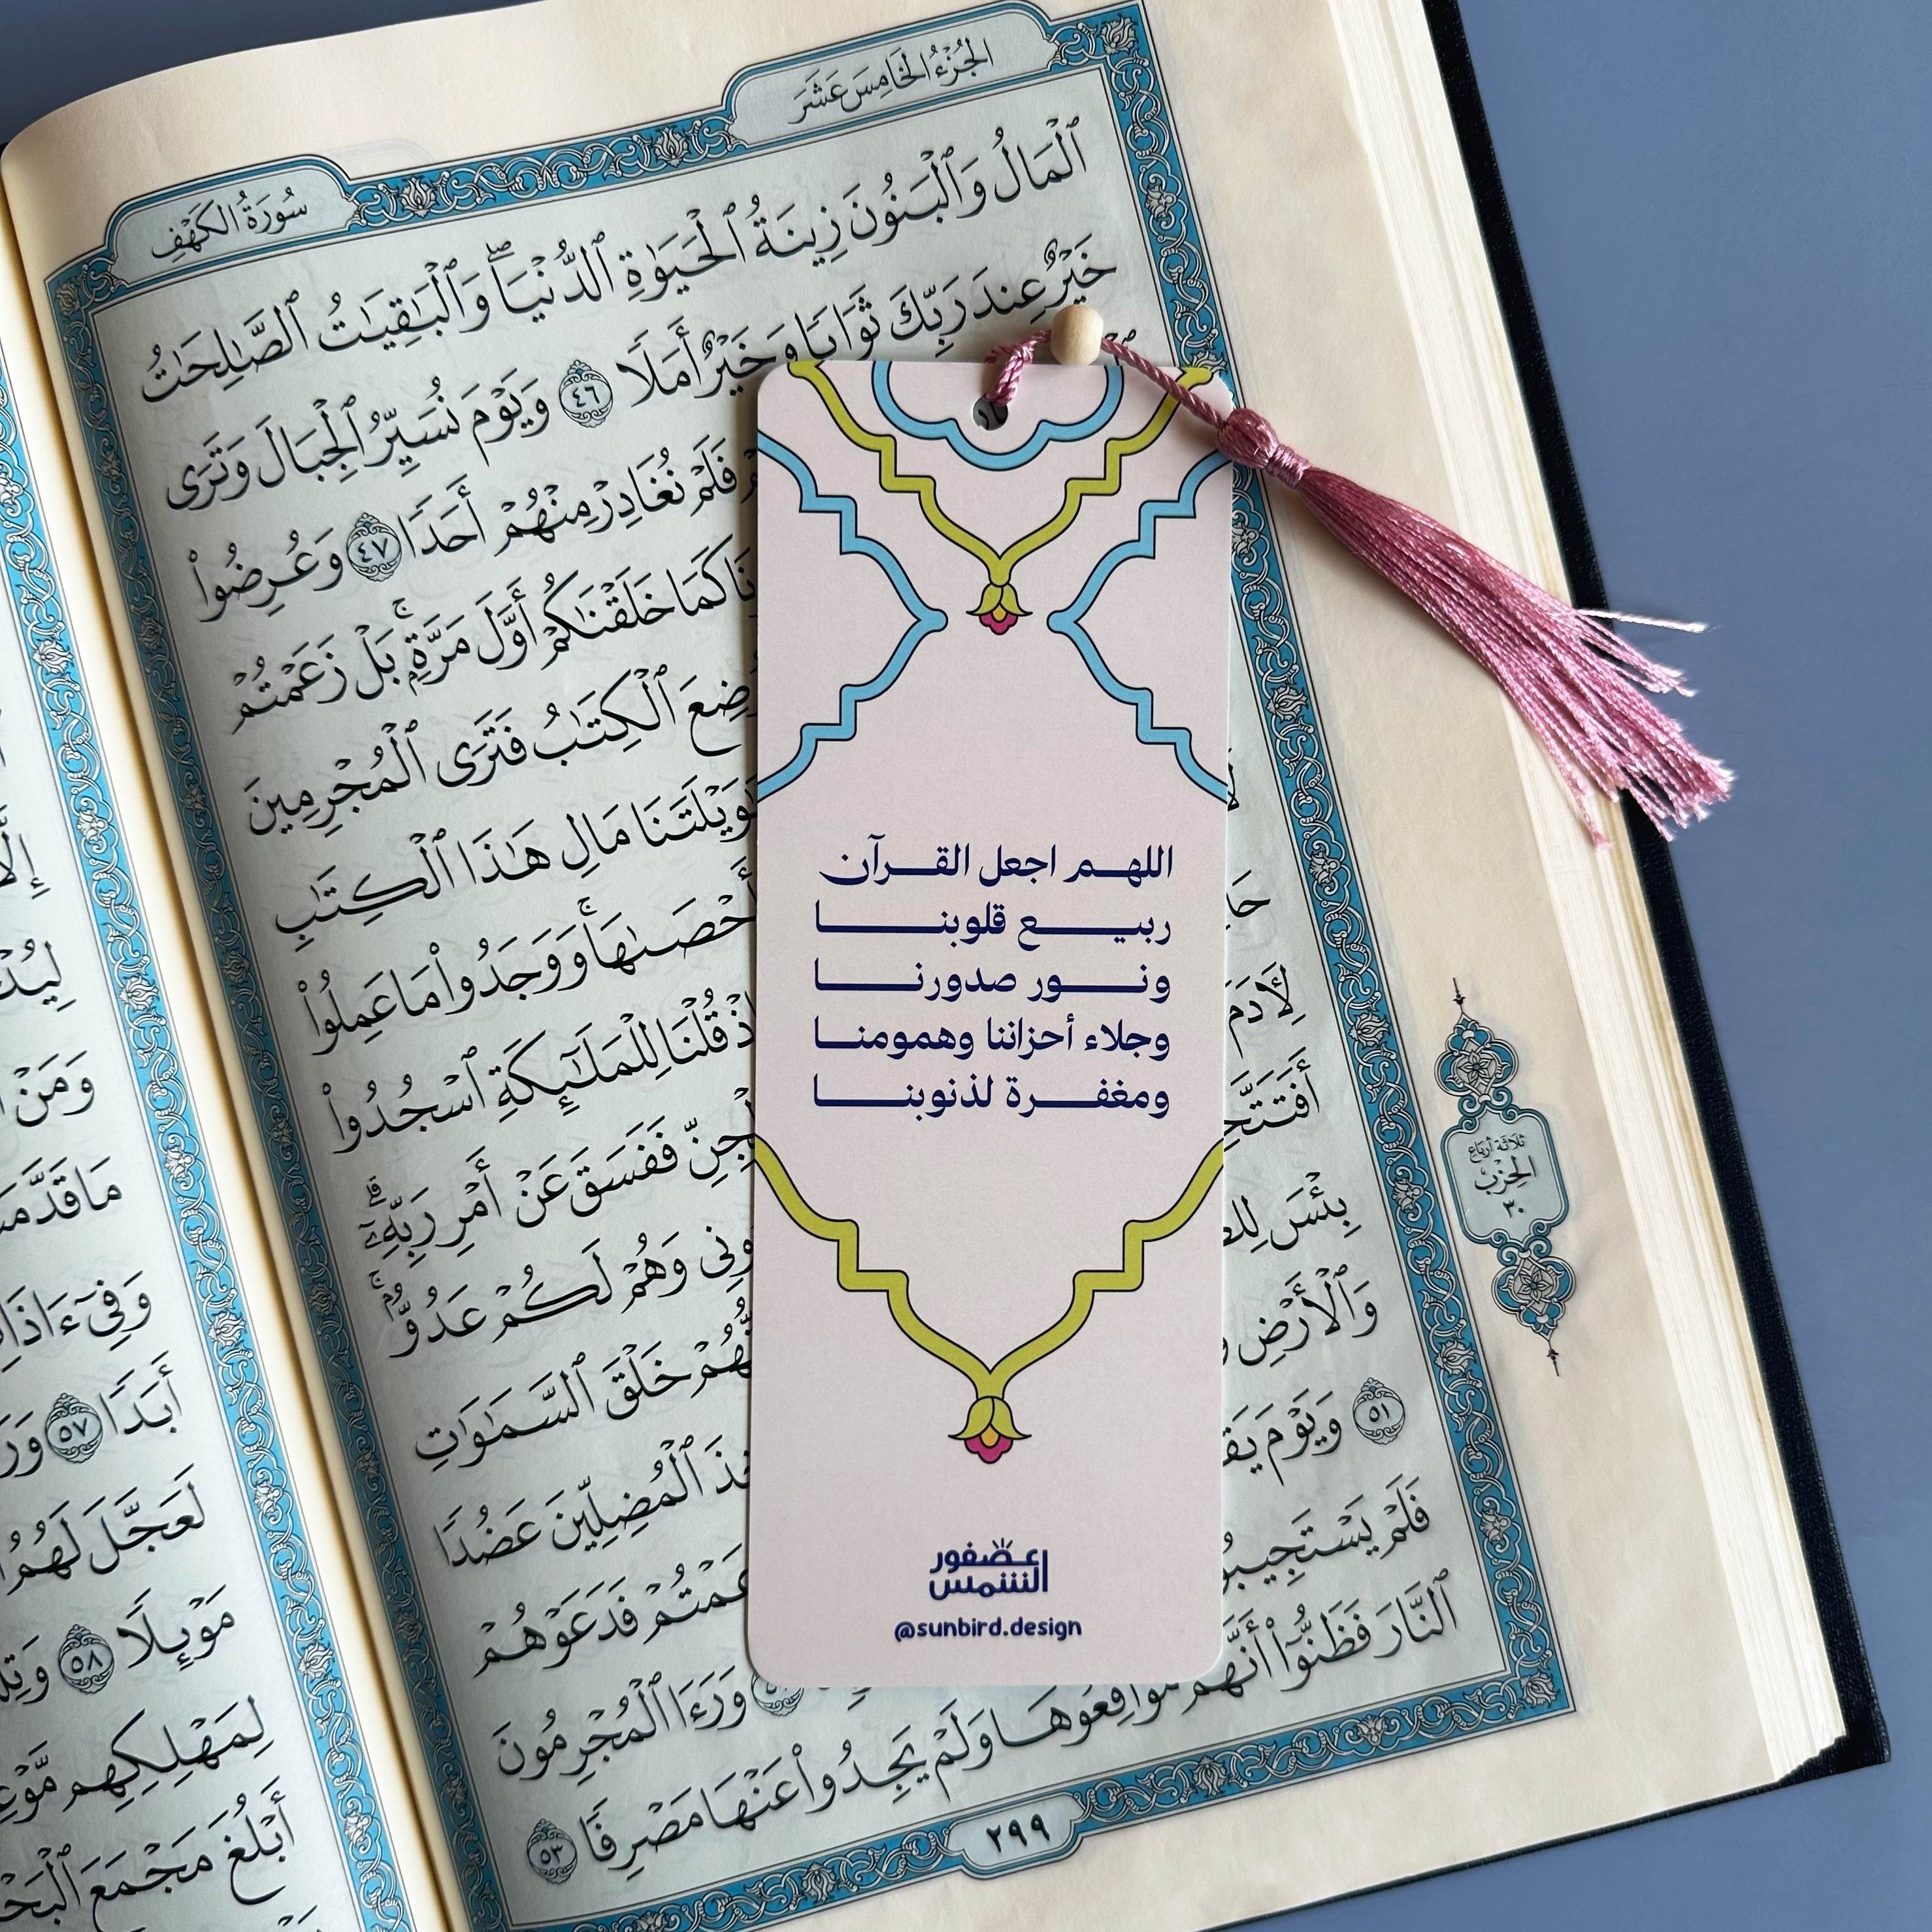 سُورَةُ الكَهْفِ
الجُزْءُ الخَامِسَ عَشَرَ
ٱلْمَالُ وَٱلْبَنُونَ زِينَةُ ٱلْحَيَوٰةِ ٱلدُّنْيَاۖ وَٱلْبَٰقِيَٰتُ ٱلصَّٰلِحَٰتُ
خَيْرٌ عِندَ رَبِّكَ ثَوَابًا وَخَيْرٌ أَمَلًا ٤٦ وَيَوْمَ نُسَيِّرُ ٱلْجِبَالَ وَتَرَى
فَلَمْ نُغَادِرْ مِنْهُمْ أَحَدًا ٤٧ وَعُرِضُوا۟
كَمَا خَلَقْنَٰكُمْ أَوَّلَ مَرَّةٍۭۚ بَلْ زَعَمْتُمْ
ٱلْكِتَٰبُ فَتَرَى ٱلْمُجْرِمِينَ
مَالِ هَٰذَا ٱلْكِتَٰبِ
وَوَجَدُوا۟ مَا عَمِلُوا۟
قُلْنَا لِلْمَلَٰٓئِكَةِ ٱسْجُدُوا۟
لِءَادَمَ
فَفَسَقَ عَنْ أَمْرِ رَبِّهِۦٓۗ
وَهُمْ لَكُمْ عَدُوٌّۢۚ
بِئْسَ
خَلْقَ ٱلسَّمَٰوَٰتِ
وَٱلْأَرْضِ
ٱلْمُضِلِّينَ عَضُدًا
٥١ وَيَوْمَ
فَدَعَوْهُمْ
فَلَمْ
وَرَءَا ٱلْمُجْرِمُونَ
ٱلنَّارَ فَظَنُّوٓا۟ أَنَّهُم مُّوَاقِعُوهَا وَلَمْ يَجِدُوا۟ عَنْهَا مَصْرِفًا ٥٣
٢٩٩
ثلاثة أرباع
الحزب
٣٠
اللهم اجعل القرآن
ربيع قلوبنا
ونور صدورنا
وجلاء أحزاننا وهمومنا
ومغفرة لذنوبنا
عصفور
الشمس
@sunbird.design
وَمَنْ
أَبَدًا ٥٧
لَعَجَّلَ لَهُمُ
مَوْئِلًا ٥٨
لِمَهْلِكِهِم
أَبْلُغَ مَجْمَعَ